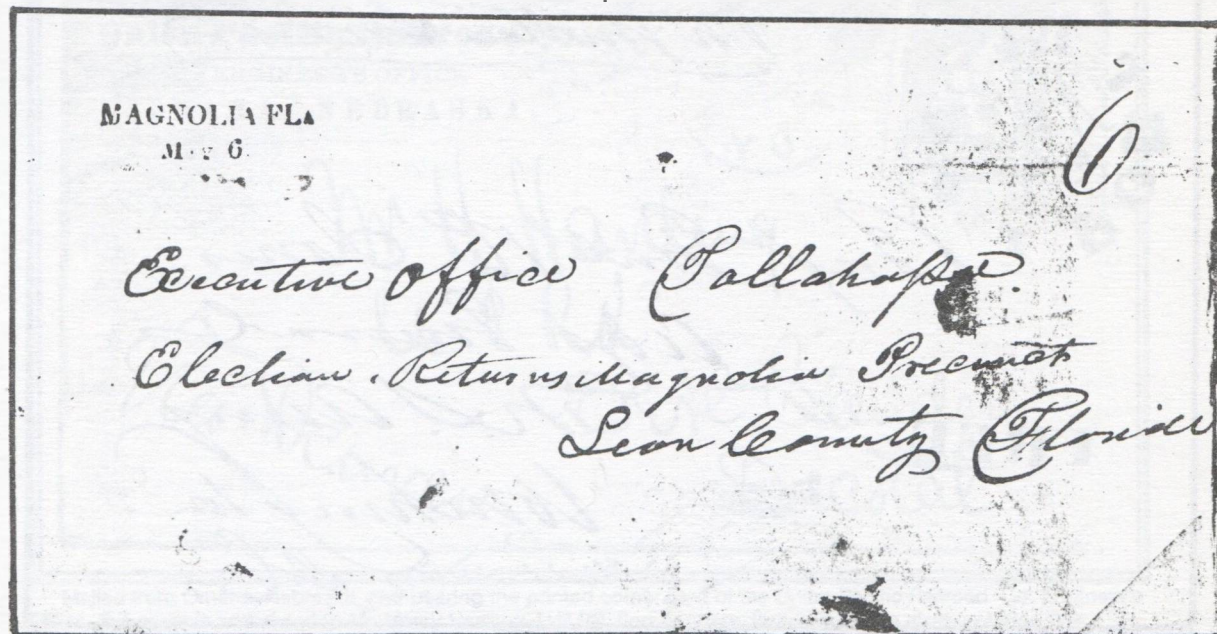 MAGNOLIA FLA
6
6
Executive office Tallahassee
Election Returns Magnolia Precinct
Leon County Florida